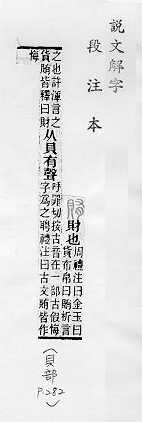 說文解字
段注本
賄
財也
周禮注曰金玉曰
貨布帛曰賄析言
之也許渾言之
貨賄皆釋曰財
从貝有聲
呼罪切按古音在一部古假悔
字爲之聘禮注曰古文賄皆作
悔
(貝部 P.282)